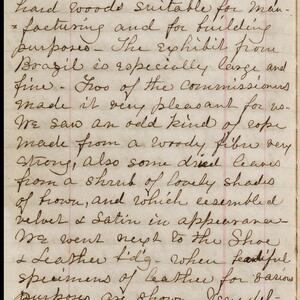 hard woods suitable for man-
ufacturing and for building
purposes - The exhibit from
Brazil is especially large and
fine - Two of the commissioners
made it very pleasant for us -
We saw an odd kind of rope
made from a woody fibre very
strong, also some dried leaves
from a shrub of lovely shades
of brown, and which resembled
velvet & satin in appearance -
We went next to the Shoe
& Leather bldg. when beautiful
specimens of leather for various
purposes are shown